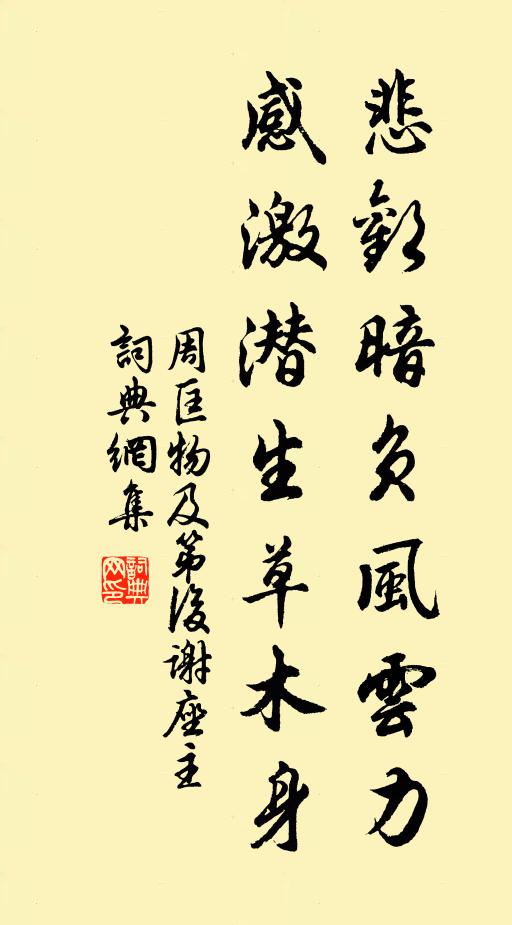 悲歡暗負風雲力
感激潜生草木身
周匡物及第後謝座主
詞典網集
詞典
网印